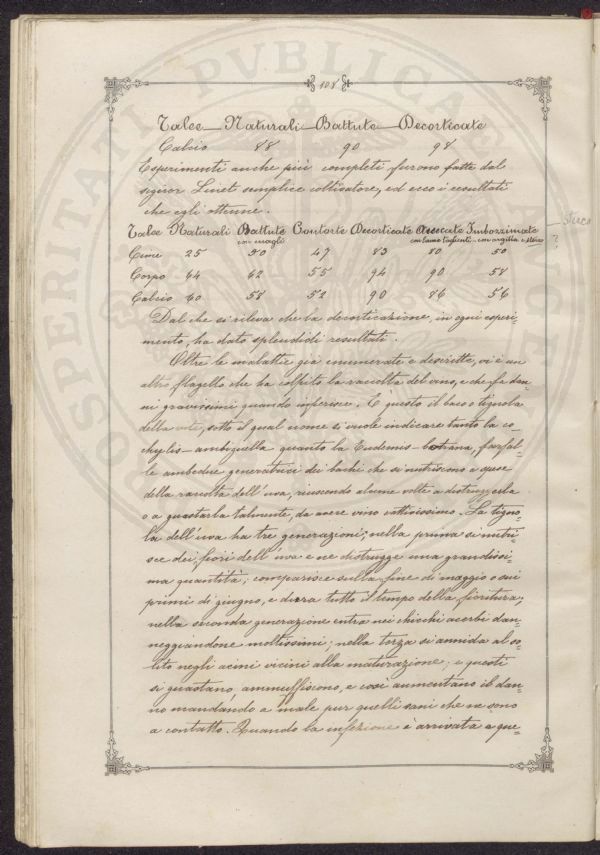 108
Talee — Naturali — Battute — Decorticate
Calcio 88 90 98
Esperimenti anche più completi furono fatte dal
signor Liviet semplice coltivatore, ed ecco i resultati
che egli ottenne.
Talee Naturali Battute Contorte Decorticate Imborzimate
con magli con argilla e
Cime 25 30 47 83 80 50
Corpo 44 42 55 94 90 58
Calcio 40 58 52 90 86 56
?
Dal che si rileva che la decorticazione, in ogni esperi-
mento, ha dato splendidi resultati.
Oltre le malattie già enumerate e descritte, vi è un
altro flagello che ha colpito la raccolta del vino, e che fa dan-
ni gravissimi quando inferisce. È questo il baco o tignola
della vite, sotto il qual nome si vuole indicare tanto la co-
chylis-ambiguella quanto la Eudemis-botrana, farfal-
le ambedue generatrici dei bachi che si nutriscono a spese
della raccolta dell'uva, riuscendo alcune volte a distruggerla
o a guastarla talmente, da avere vino cattivissimo. La tigno-
la dell'uva ha tre generazioni; nella prima si nutri-
sce dei fiori dell'uva e ne distrugge una grandissi-
ma quantità; comparisce sulla fine di maggio o sui
primi di giugno, e dura tutto il tempo della fioritura;
nella seconda generazione entra nei chicchi acerbi dan-
neggiandone moltissimi; nella terza si annida al so-
lito negli acini vicini alla maturazione; e questi
si guastano, ammuffiscono, e così aumentano il dan-
no mandando a male pur quelli sani che ne sono
a contatto. Quando la infezione è arrivata a que-
PROSPERITATI PUBLICAE